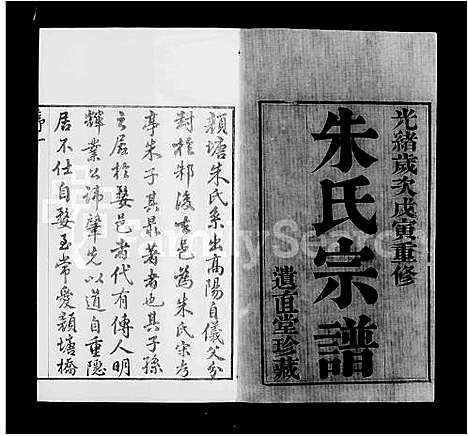 光緒歲次戊寅重修
朱氏宗譜
遺直堂珍藏
顏塘朱氏系出高陽自儀父分
封於邾後去邑為朱氏宋考
亭朱子其最著者也其子孫
之居於婺邑者代有傳人明
輝業公諱肇先以道自重隱
居不仕自婺玉常愛顏塘橋
序一
FamilySearch